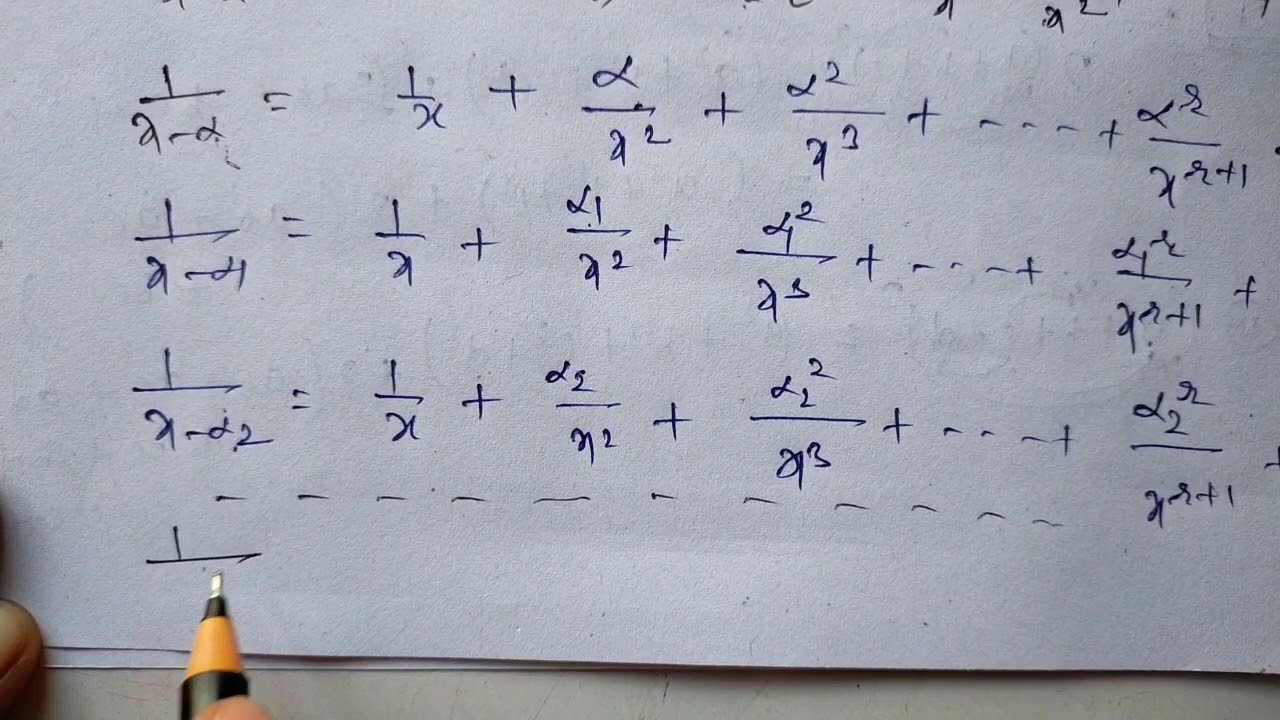 x²
1/(x-α) = 1/x + α/x² + α²/x³ + ---- + α^r/x^(r+1)
1/(x-α1) = 1/x + α1/x² + α1²/x³ + ---- + α1^r/x^(r+1) +
1/(x-α2) = 1/x + α2/x² + α2²/x³ + ---- + α2^r/x^(r+1) +
- - - - - - - - - - -
1/